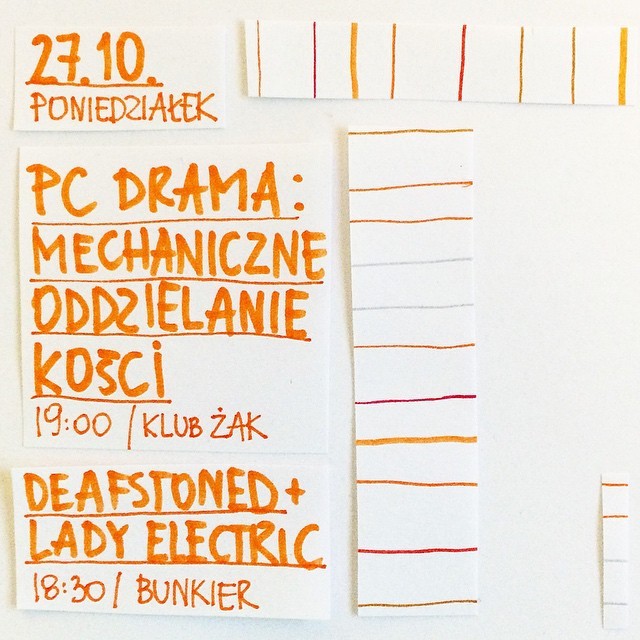 27.10.
PONIEDZIAŁEK
PC DRAMA:
MECHANICZNE
ODDZIELANIE
KOŚCI
19:00 / KLUB ŻAK
DEAFSTONED +
LADY ELECTRIC
18:30 / BUNKIER